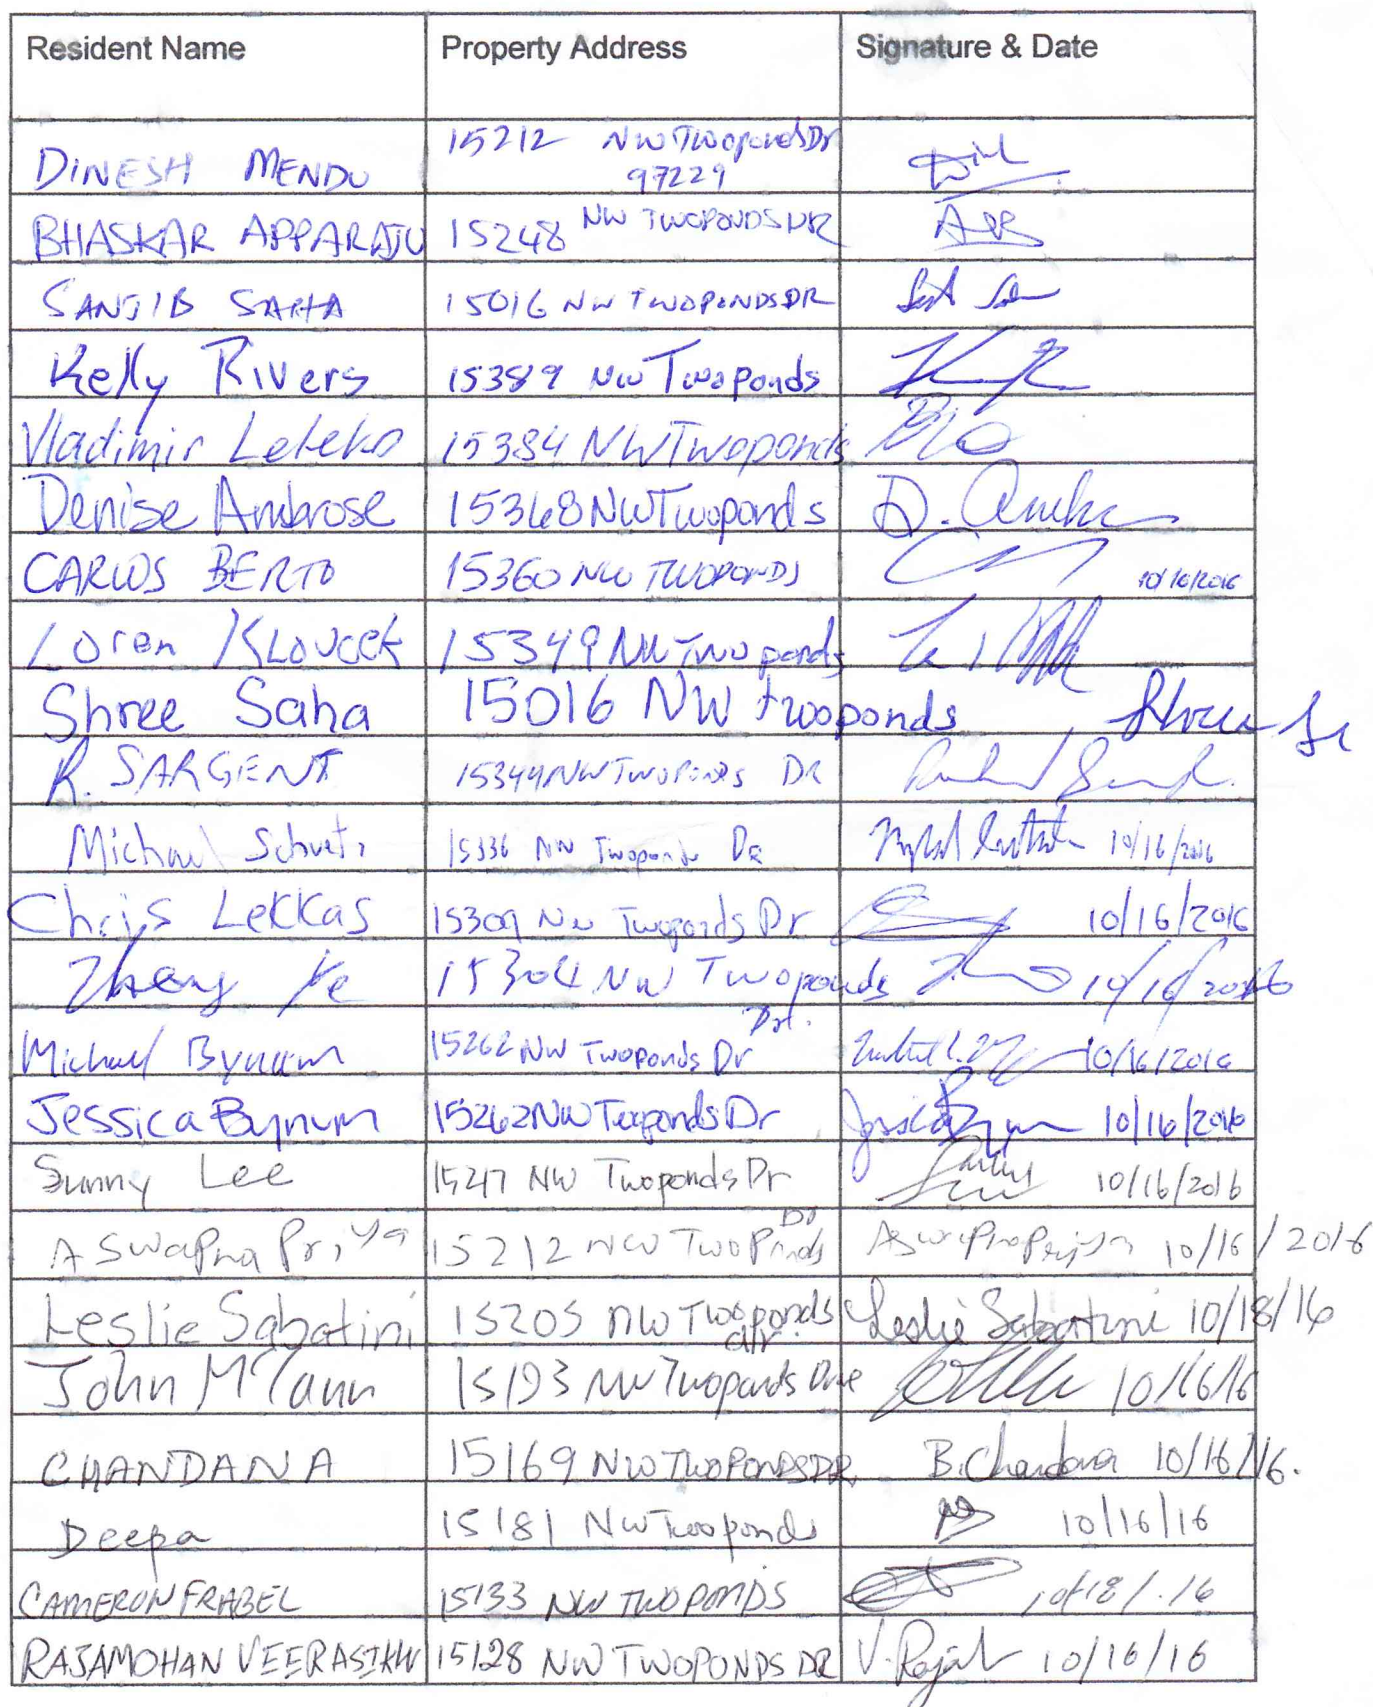 Resident Name Property Address Signature & Date
DINESH MENDU 15212 NW Twoponds Dr
97229
BHASKAR APPARAJU 15248 NW TWOPONDS DR
SANJIB SAHA 15016 NW TWOPONDS DR
Kelly Rivers 15389 NW Twoponds
Vladimir 15384 NW Twoponds
Denise Ambrose 15368 NW Twoponds
CARLOS BERTO 15360 NW TWOPONDS 10/16/2016
Loren Kloucek 15349 NW Twoponds
Shree Saha 15016 NW twoponds
R. SARGENT 15344 NW Twoponds DR
Michael 15336 NW Twoponds DR 10/16/2016
Chris Lekkas 15309 NW Twoponds Dr 10/16/2016
Ye 15304 NW Twoponds 10/16/2016
Michael Bynum 15262 NW Twoponds Dr 10/16/2016
Jessica Bynum 15262 NW Twoponds Dr 10/16/2016
Sunny Lee 15217 NW Twoponds Dr 10/16/2016
A Swapna Priya 15212 NW Twoponds Dr 10/16/2016
Leslie Sabatini 15205 NW Twoponds dr Leslie Sabatini 10/18/16
John 15193 NW Twoponds Drive 10/16/16
CHANDANA 15169 NW TWOPONDS DR, B.Chandana 10/16/16.
Deepa 15181 NW Twoponds 10/16/16
CAMERON FRABEL 15133 NW TWOPONDS 10/18/.16
RAJAMOHAN 15128 NW TWOPONDS DR 10/16/16